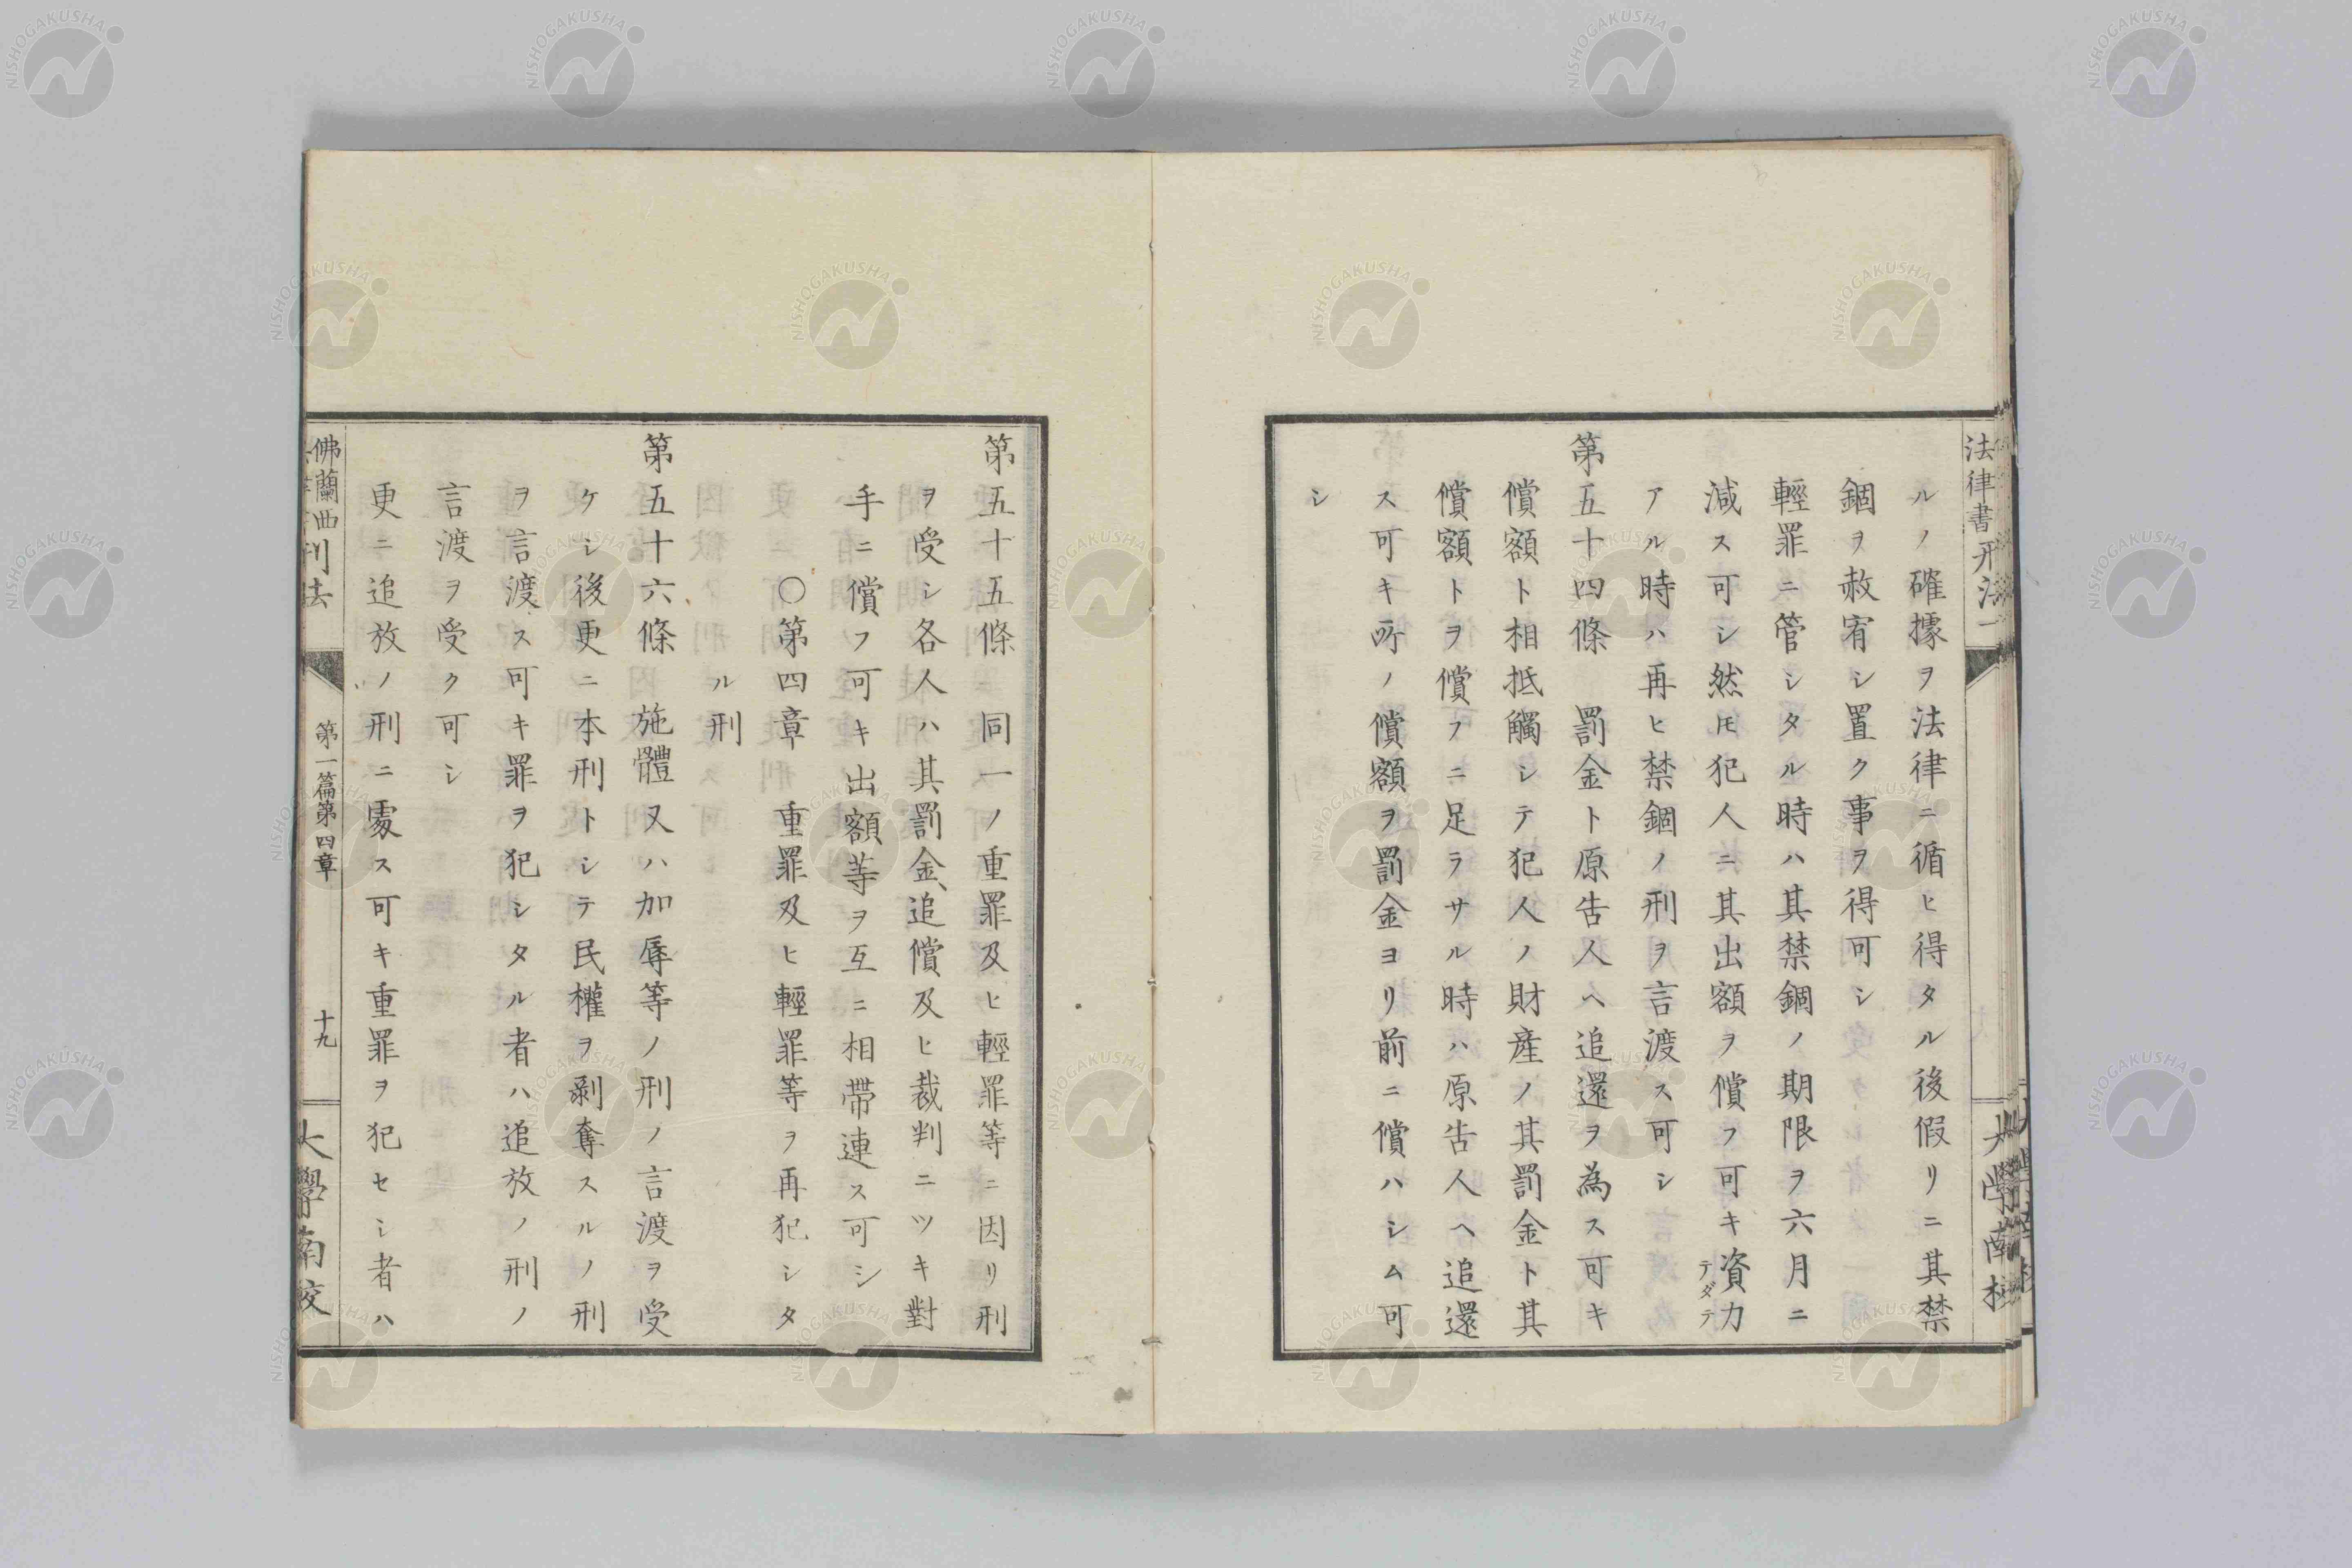 法律書 刑法一
大學南校
ルノ確據ヲ法律ニ循ヒ得タル後假リニ其禁
錮ヲ赦宥シ置ク事ヲ得可シ
輕罪ニ管シタル時ハ其禁錮ノ期限ヲ六月ニ
減ス可シ然𪜈犯人ニ其出額ヲ償フ可キ資力
テダテ
アル時ハ再ヒ禁錮ノ刑ヲ言渡ス可シ
第五十四條 罰金ト原告人ヘ追還ヲ為ス可キ
償額ト相抵觸シテ犯人ノ財產ノ其罰金ト其
償額トヲ償フニ足ラサル時ハ原告人ヘ追還
ス可キ所ノ償額ヲ罰金ヨリ前ニ償ハシム可
シ
第五十五條 同一ノ重罪及ヒ輕罪等ニ因リ刑
ヲ受シ各人ハ其罰金、追償及ヒ裁判ニツキ對
手ニ償フ可キ出額等ヲ互ニ相帶連ス可シ
○第四章 重罪及ヒ輕罪等ヲ再犯シタ
ル刑
第五十六條 施體又ハ加辱等ノ刑ノ言渡ヲ受
ケシ後更ニ本刑トシテ民權ヲ剥奪スルノ刑
ヲ言渡ス可キ罪ヲ犯シタル者ハ追放ノ刑ノ
言渡ヲ受ク可シ
更ニ追放ノ刑ニ處ス可キ重罪ヲ犯セシ者ハ
佛蘭西刑法
第一篇第四章
十九
大學南校
NISHOGAKUSHA